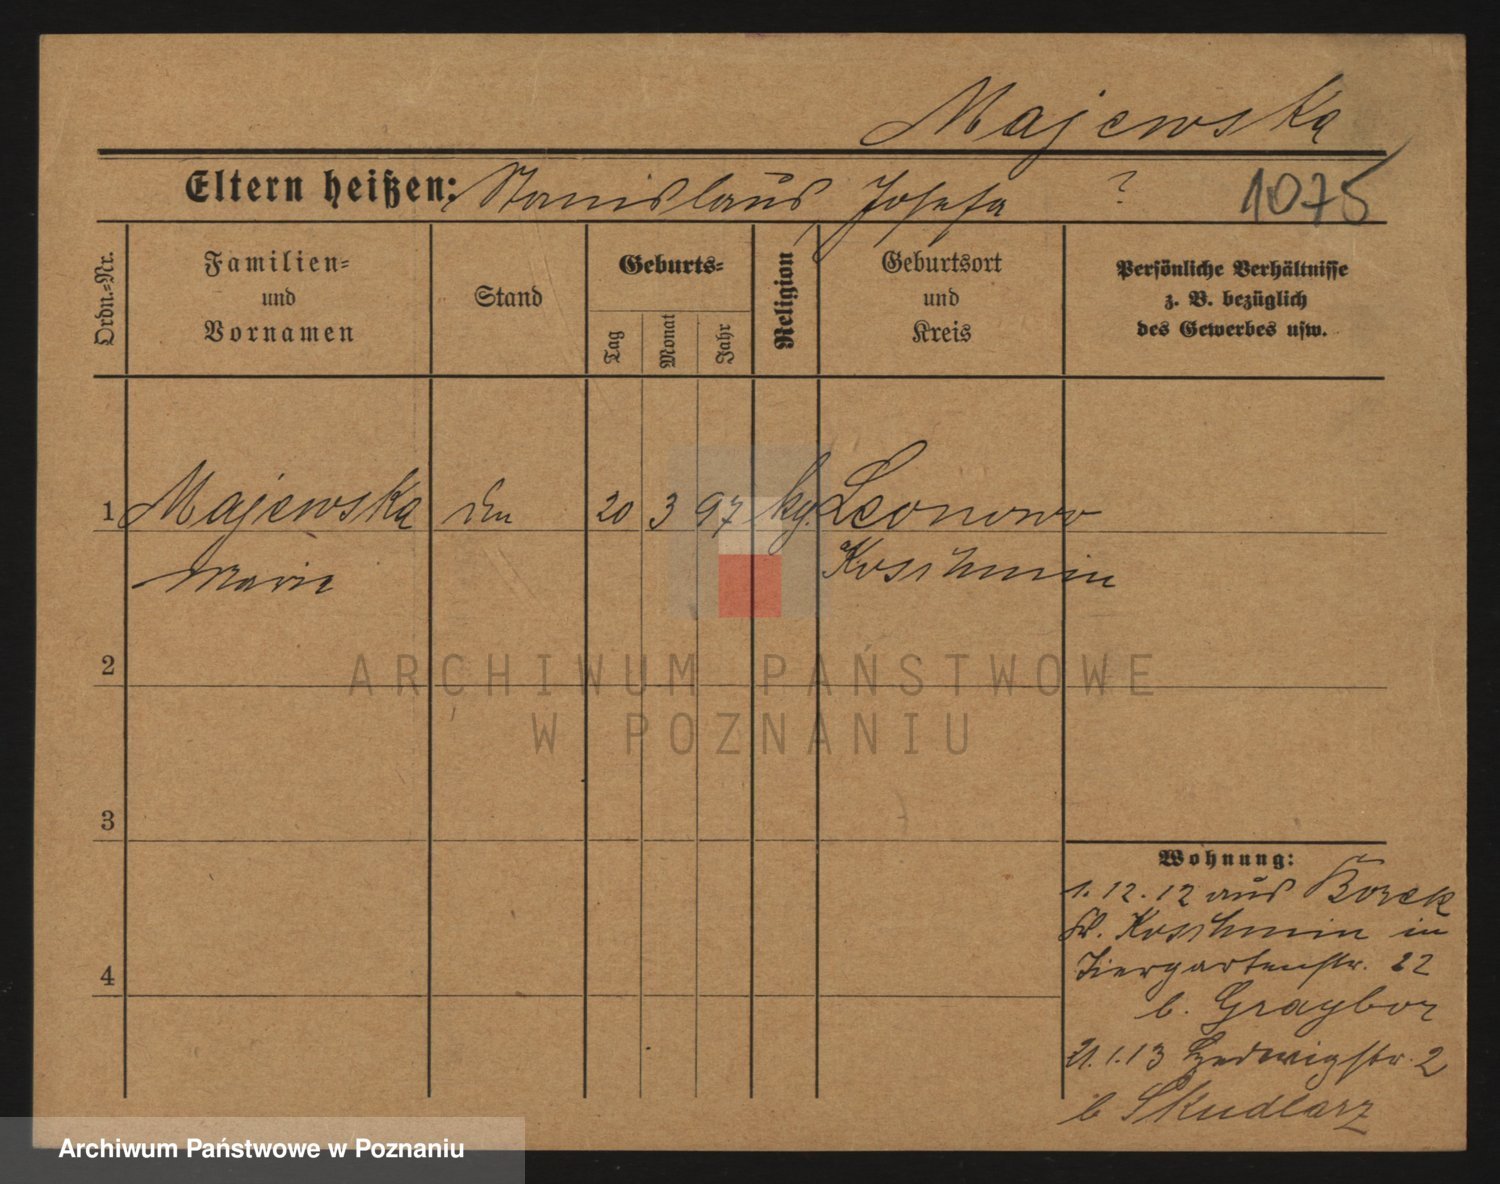 Majewska
Eltern heißen: Stanislaus Josefa ?
1075
Ordn.-Nr.
Familien-
und
Vornamen
Stand
Geburts-
Tag
Monat
Jahr
Religion
Geburtsort
und
Kreis
Persönliche Verhältnisse
z. B. bezüglich
des Gewerbes usw.
1 Majewska 20 3 97 Leonowo
Marie Koschmin
2
ARCHIWUM PAŃSTWOWE
W POZNANIU
3
4
Wohnung:
1.12.12 aus Borek
Koschmin in
Tiergartenstr. 22
b. Graybor
21.1.13 Hedwigstr. 2
b Skudlarz
Archiwum Państwowe w Poznaniu